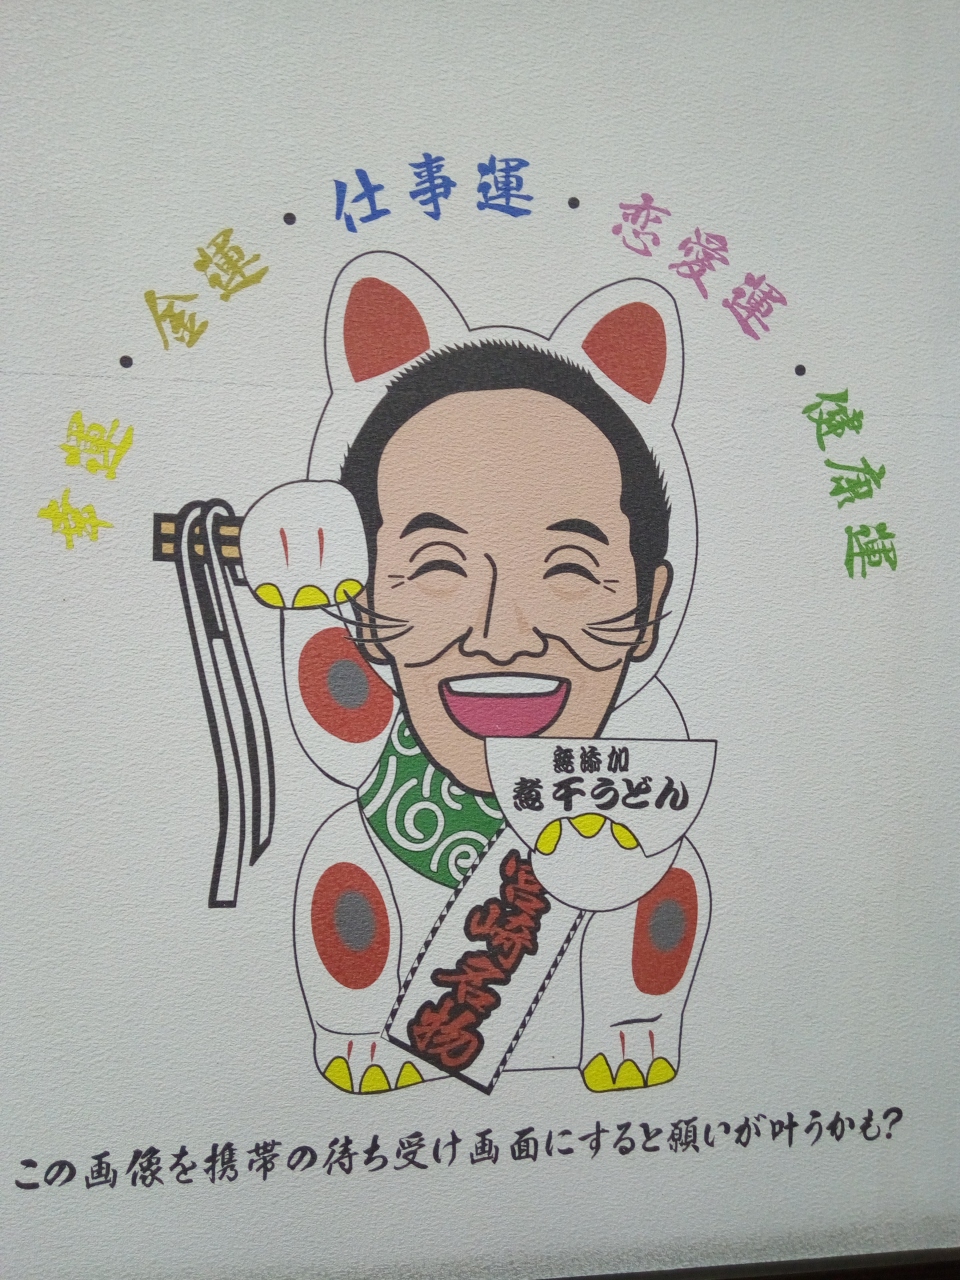 幸運・金運・仕事運・恋愛運・健康運
無添加
煮干うどん
宮崎名物
この画像を携帯の待ち受け画面にすると願いが叶うかも?